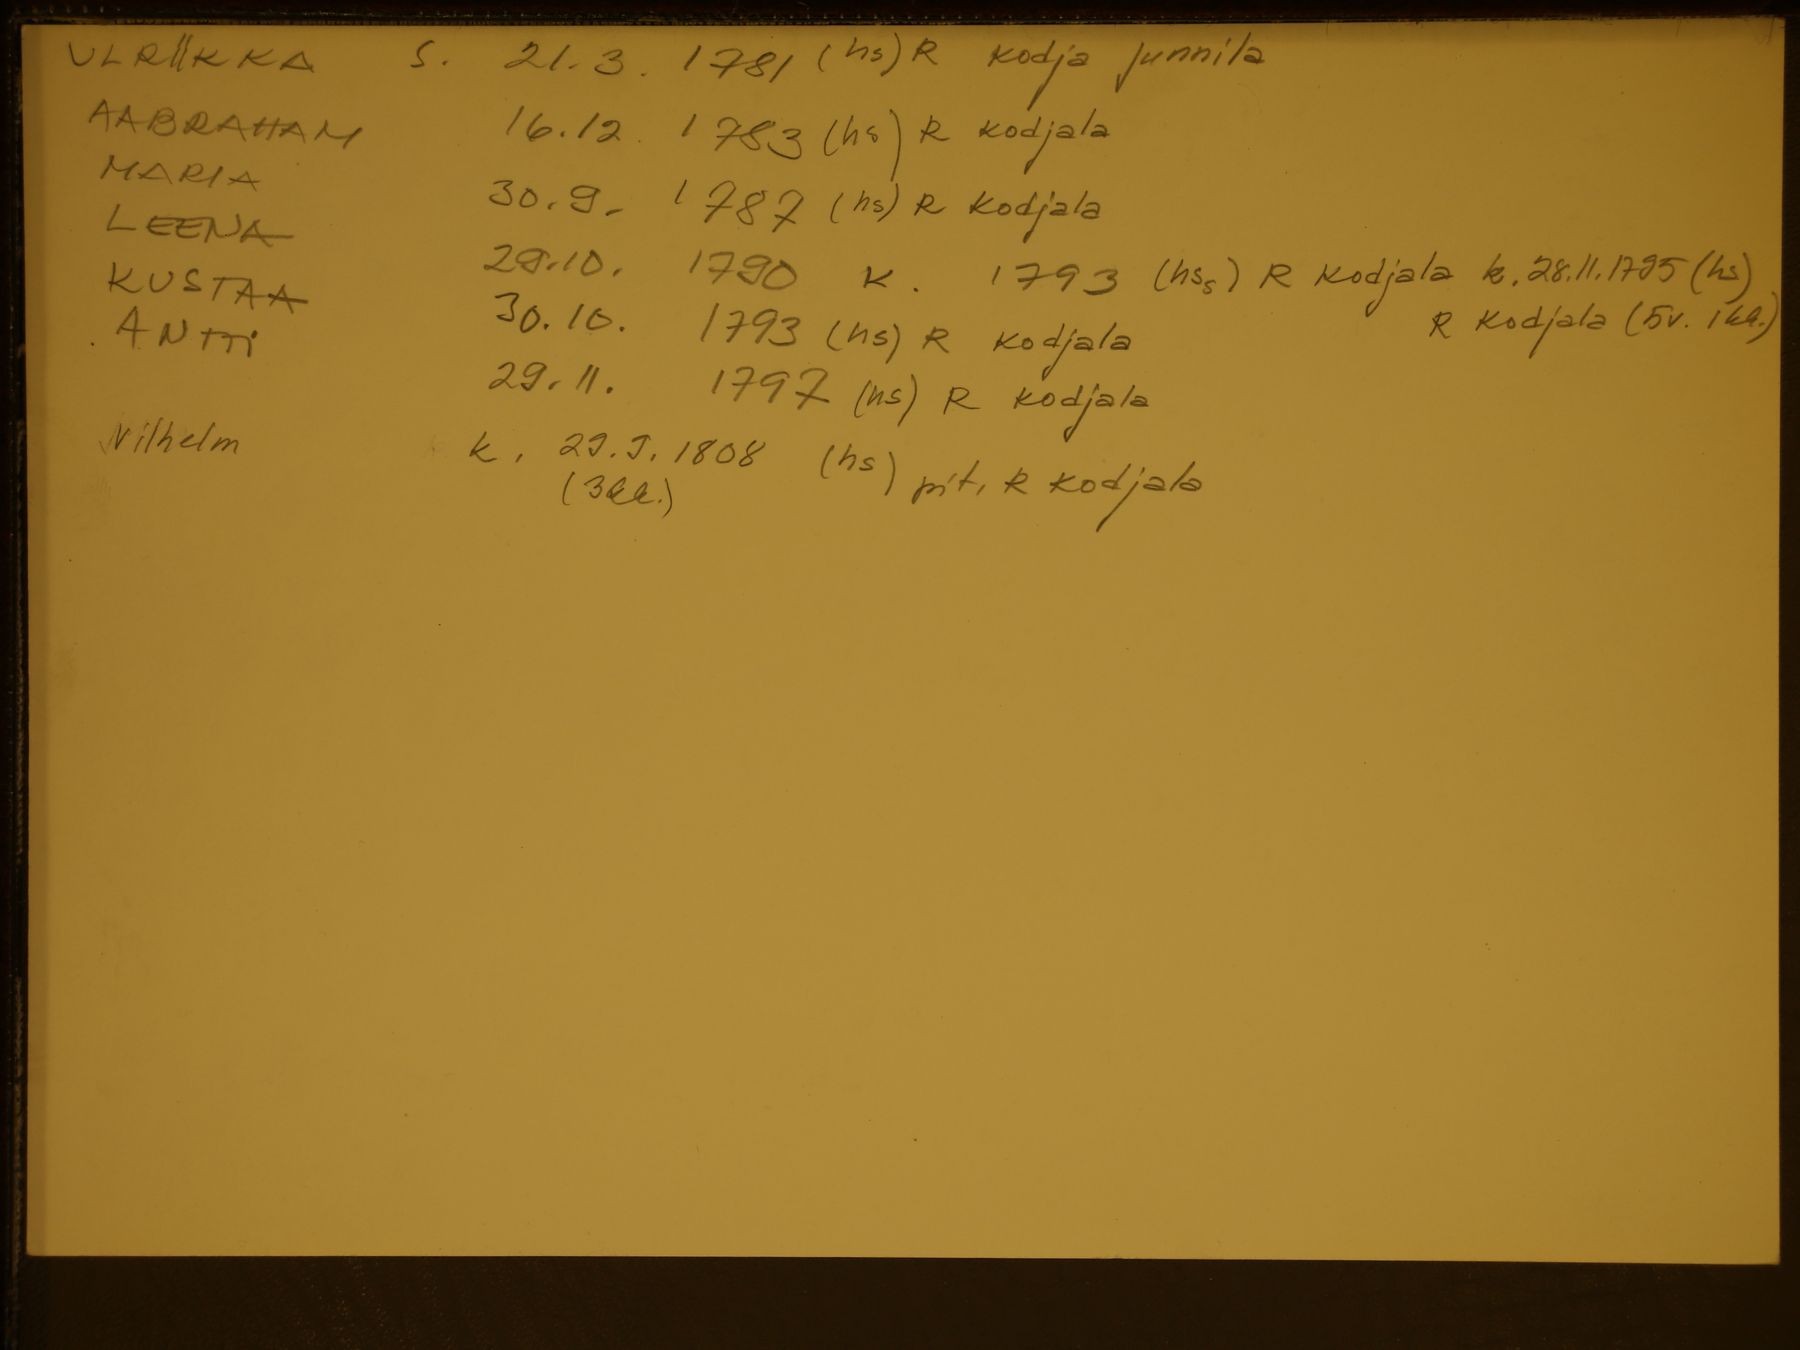 ULRIIKKA S. 21.3. 1781 (hs) R Kodja Junnila
AABRAHAM 16.12. 1783 (hs) R Kodjala
MARIA 30.9. 1787 (hs) R Kodjala
LEENA 29.10. 1790 K. 1793 (hss) R Kodjala k. 28.11.1795 (hs)
R Kodjala (5v. 1kk.)
KUSTAA 30.10. 1793 (hs) R Kodjala
ANTTI 29.11. 1797 (hs) R Kodjala
Vilhelm k. 29.9.1808 (hs) pit. R Kodjala
(3kk.)